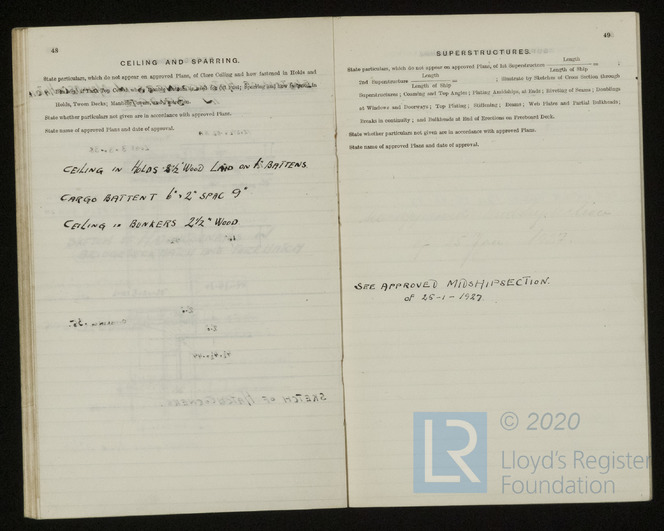 48
CEILING AND SPARRING.
State particulars, which do not appear on approved Plans, of Close Ceiling and how fastened in Holds and
Holds, Tween Decks;
State whether particulars not given are in accordance with approved Plans.
State name of approved Plans and date of approval.
CEILING IN HOLDS 2½" WOOD LAID ON BATTENS.
CARGO BATTENT 6" × 2" SPAC 9"
CEILING IN BUNKERS 2½" WOOD
49
SUPERSTRUCTURES.
State particulars, which do not appear on approved Plans, of 1st Superstructure Length / Length of Ship = ;
2nd Superstructure Length / Length of Ship = ; Illustrate by Sketches of Cross Section through
Superstructures; Coaming and Top Angles; Plating Amidships, at Ends; Riveting of Seams; Doublings
at Windows and Doorways; Top Plating; Stiffening; Beams; Web Plates and Partial Bulkheads;
Breaks in continuity; and Bulkheads at End of Erections on Freeboard Deck.
State whether particulars not given are in accordance with approved Plans.
State name of approved Plans and date of approval.
SEE APPROVED MIDSHIPSECTION.
of 25-1-1927
LR
© 2020
Lloyd's Register
Foundation